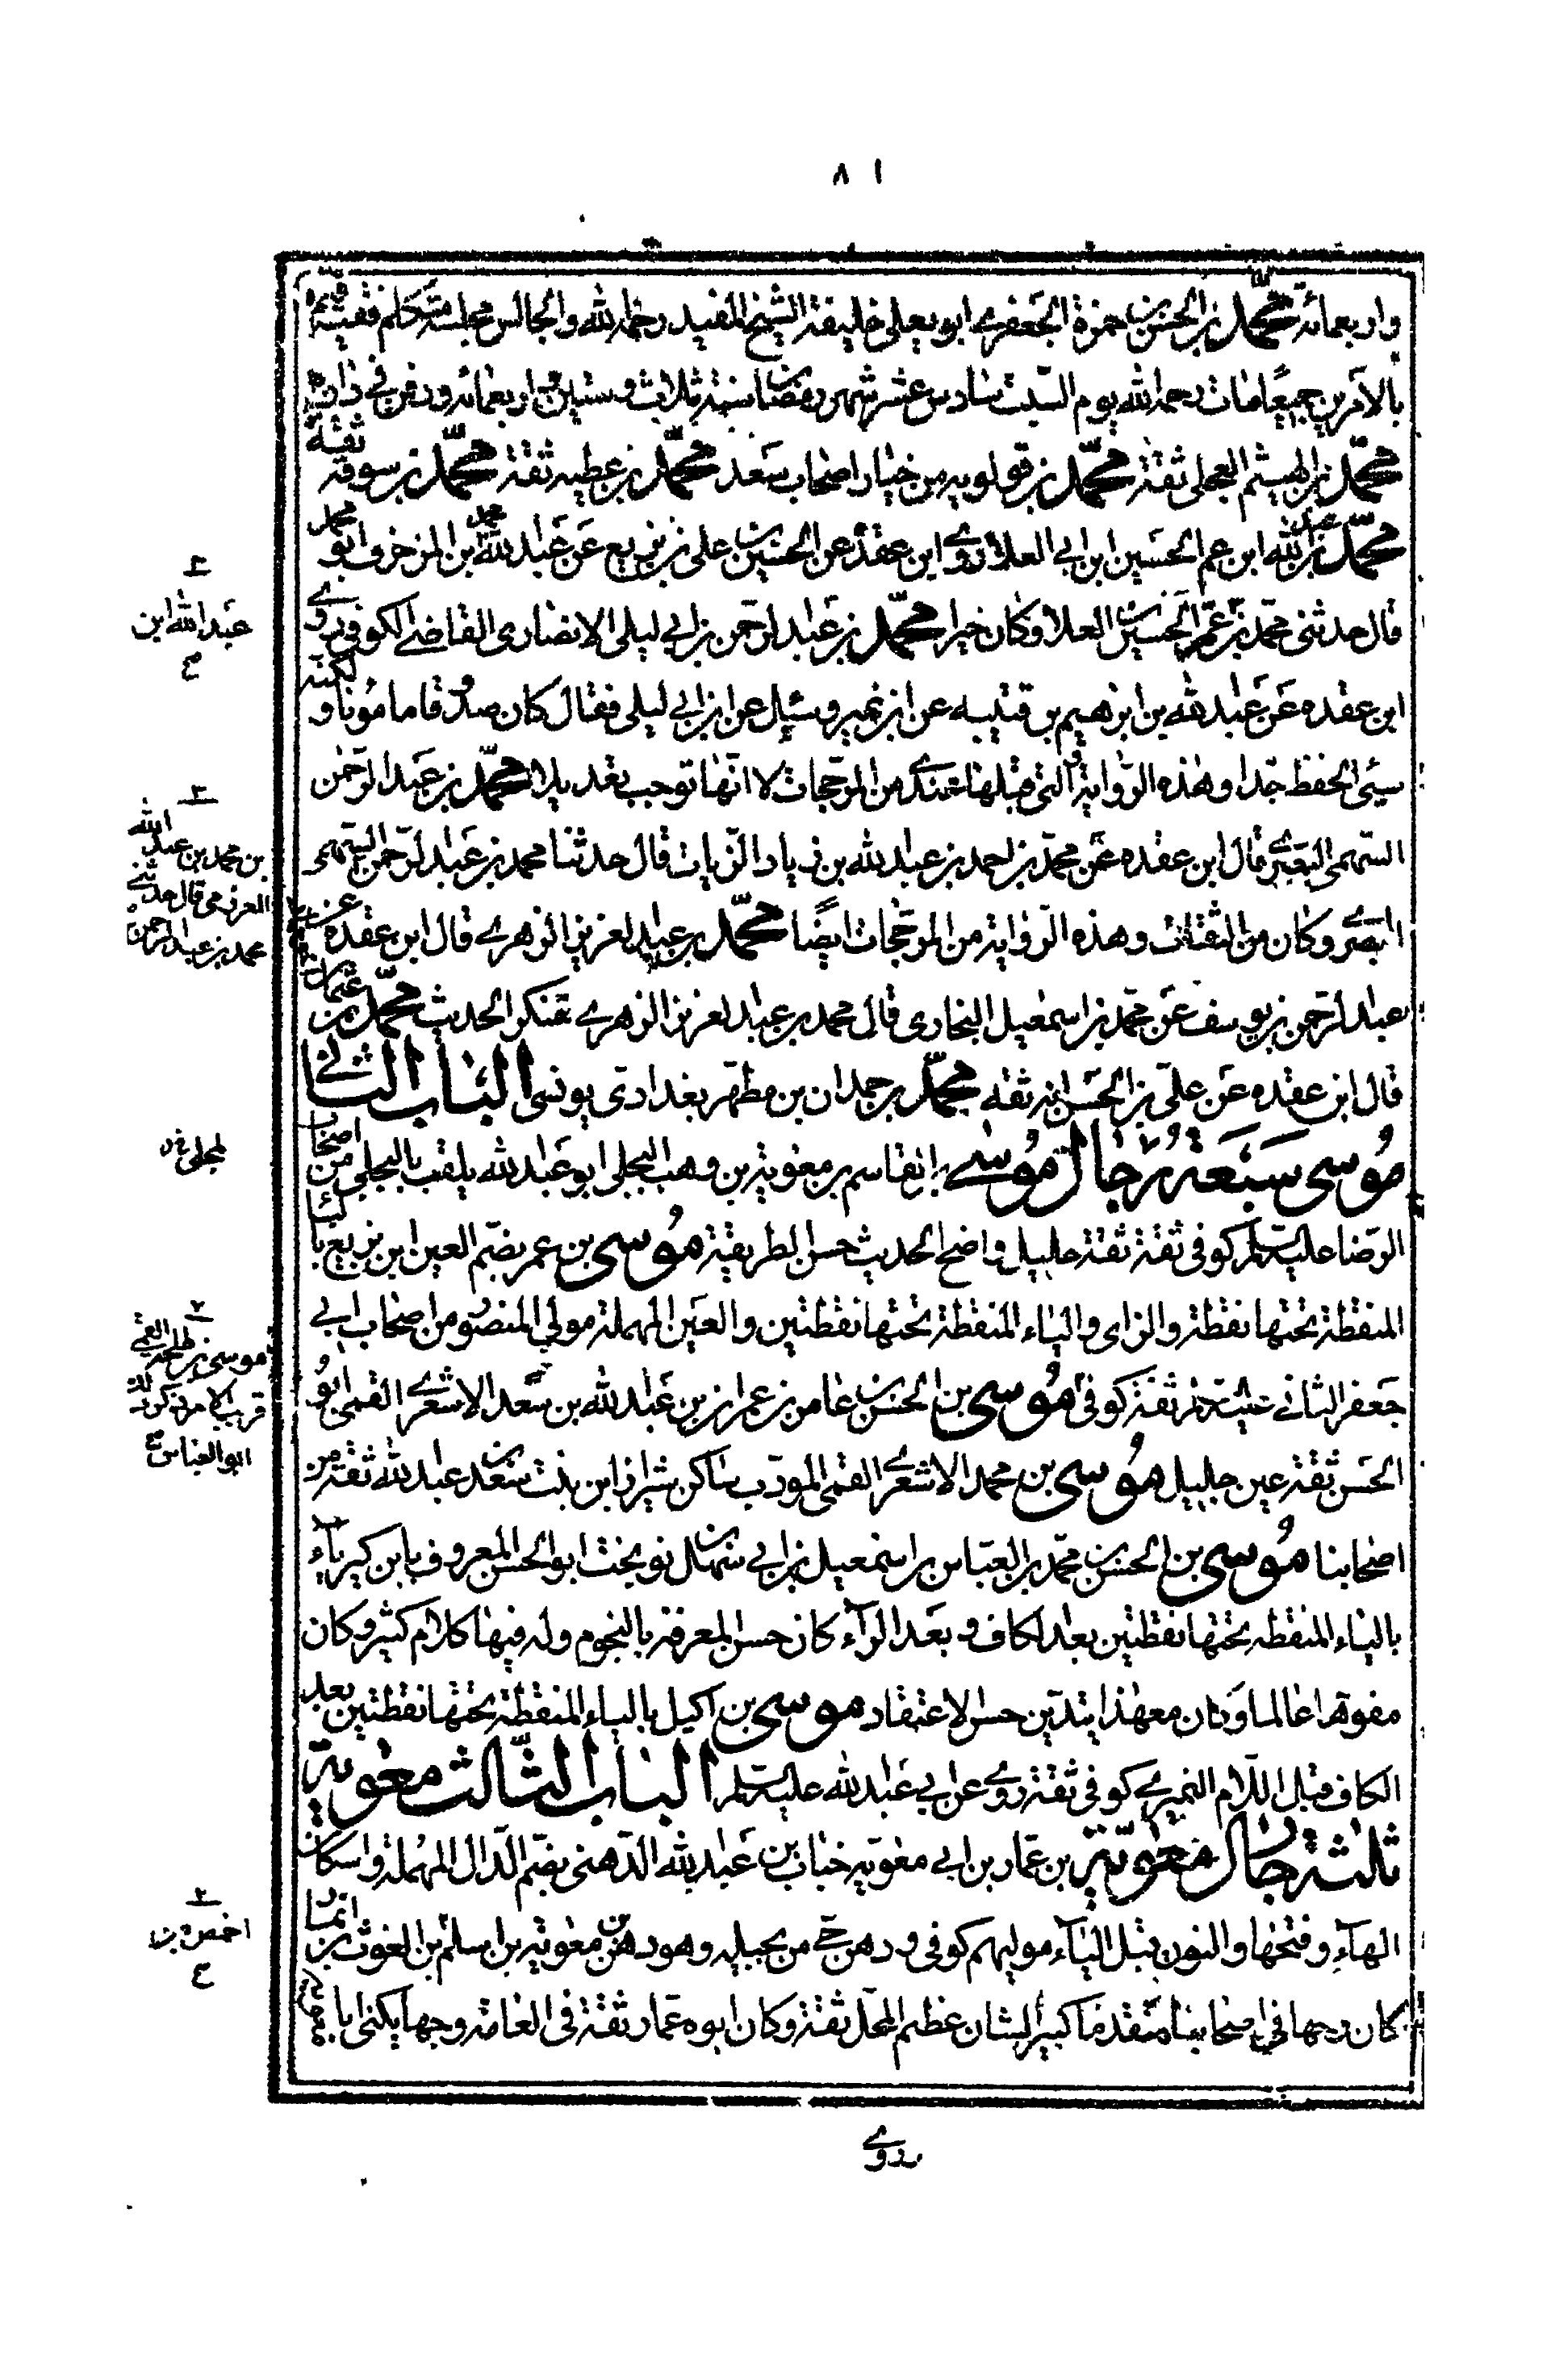 ٨١
واربعمائة محمد بن الحسن بن حمزة الجعفرى ابو يعلى خليفة الشيخ المفيد رحمه الله والجالس مجلسه متكلم فقيه قيم
بالامرين جميعا مات رحمه الله يوم السبت سادس عشر شهر رمضان سنة ثلاث وستين واربعمائه ودفن فى داره
محمد بن الهيثم العجلى ثقة محمد بن قولويه من خيار اصحاب سعد محمد بن عطيه ثقة محمد بن سوقه ثقة
محمد بن عبد الله ابن عم الحسين ابن ابى العلا روى ابن عقدة عن الحسين بن على بن بزيع عن عبد الله بن محمد المزخرف ابو محمد
قال حدثنى محمد بن عم الحسين بن العلا وكان خيرا محمد بن عبد الرحمن بن ابى ليلى الانصارى القاضى الكوفى روى
ابن عقده عن عبد الله بن ابرهيم بن قتيبه عن ابن نمير وسئل عن ابن ابى ليلى فقال كان صدوقا مامونا ولكنه
سيئ الحفظ جدا وهذه الرواية والتى قبلها عندى من المرجحات لا انها توجب تعديلا محمد بن عبد الرحمن
السهمى البصرى قال ابن عقده عن محمد بن احمد بن عبد الله بن زياد الزيات قال حدثنا محمد بن عبد الرحمن السهمى
البصرى وكان من الثقات وهذه الرواية من المرجحات ايضا محمد بن عبد العزيز الزهرى قال ابن عقده عن
عبد الرحمن بن يوسف عن محمد بن اسمعيل البخارى قال محمد بن عبد العزيز الزهرى منكر الحديث محمد بن عثمان
قال ابن عقده عن على بن الحسن انه ثقه محمد بن حمدان بن مطهر بغدادى يونسى الباب الثانى
موسى سبعة رجال موسى بن القاسم بن معوية بن وهب البجلى ابو عبد الله يلقب بالبجلى من اصحاب
الرضا عليه السلم كوفى ثقة ثقة جليل واضح الحديث حسن الطريقة موسى بن عمر بضم العين ابن بزيع بالباء
المنقطة تحتها نقطة والزاى والياء المنقطة تحتها نقطتين والعين المهملة مولى المنصور من اصحاب ابى
جعفر الثانى عليه السلم ثقة كوفى موسى بن الحسن بن عامر بن عمران بن عبد الله بن سعد الاشعرى القمى ابو
الحسن ثقة عين جليل موسى بن محمد الاشعرى القمى المودب ساكن شيراز ابن بنت سعد بن عبد الله ثقة من
اصحابنا موسى بن الحسن بن محمد بن العباس بن اسمعيل بن ابى سهل بن نوبخت ابو الحسن المعروف بابن كبرياء
بالياء المنقطه تحتها نقطتين بعد الكاف وبعد الرآء كان حسن المعرفة بالنجوم وله فيها كلام كثير وكان
مفوها عالما وكان مع هذا يتدين حسن الاعتقاد موسى بن اكيل بالياء المنقطة تحتها نقطتين بعد
الكاف قبل اللام النميرى كوفى ثقة روى عن ابى عبد الله عليه السلم الباب الثالث معوية
ثلثة رجال معوية بن عمار بن ابى معوية خباب بن عبد الله الدهنى بضم الدال المهملة واسكان
الهآء وفتحها والنون قبل اليآء موليهم كوفى ودهن حى من بجيله وهو دهن بن معوية بن اسلم بن الغوث بن انمار
كان وجها فى اصحابنا متقدما كبير الشان عظيم المحل ثقة وكان ابوه عمار ثقة فى العامة وجها يكنى ابا معوية
روى
عبد الله ابن
بن محمد بن عبد الله
العرزمى قال حدثنى
محمد بن عبد الرحمن
موسى بن طلحة القمى
قريب الامر ذكر ذلك
ابو العباس
احمس بن